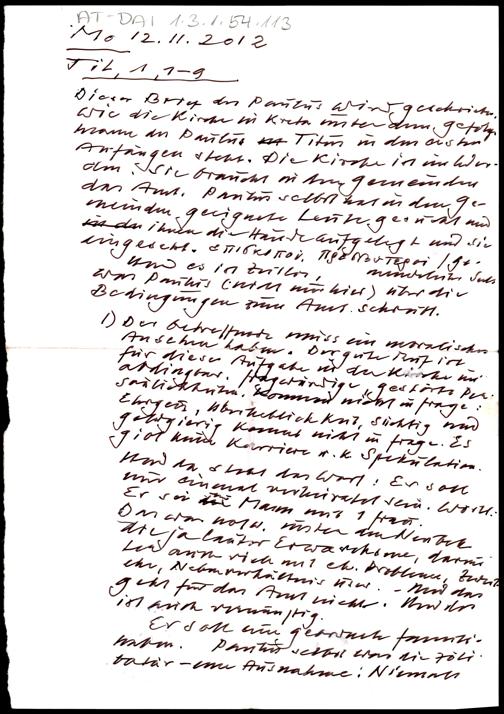 AT-DAI 1.3.1.54.113
Mo 12.11.2012
Tit, 1, 1-9
Dieser Brief des Paulus wird geschrieben,
wie die Kirche in Kreta unter dem Gefolgs-
mann des Paulus Titus in den ersten
Anfängen steht. Die Kirche ist im Wer-
den. Sie braucht in den Gemeinden
das Amt. Paulus selbst hat in den Ge-
meinden geeignete Leute gesucht und
ihnen die Hände aufgelegt und sie
eingesetzt. επισκοποι, πρεσβυτεροι
Und es ist zeitlos,
was Paulus (nicht nur hier) über die
Bedingungen zum Amt schreibt.
1) Der Betreffende muss ein moralisches
Ansehen haben. Der gute Ruf ist
für diese Aufgabe in der Kirche un-
abdingbar. Fragwürdige, gestörte Per-
sönlichkeiten nicht in Frage:
Ehrgeiz, Überheblichkeit, süchtig und
geldgierig kommt nicht in Frage. Es
gibt keine Karriere u. k. Spekulation.
Und da steht das Wort: Er soll
nur einmal verheiratet sein. Wörtl.
Er sei Mann nur 1 Frau.
Das war notw. unter den Neubek
die ja lauter Erwachsene, darun
ter auch viele mit eh. Probleme, Zweit
ehe, Nebenverhältnis usw. - Und das
geht für das Amt nicht. Und das
ist auch vernünftig.
Er soll eine geordnete Familie
haben. Paulus selbst war die zöli-
batär - eine Ausnahme: Niemals